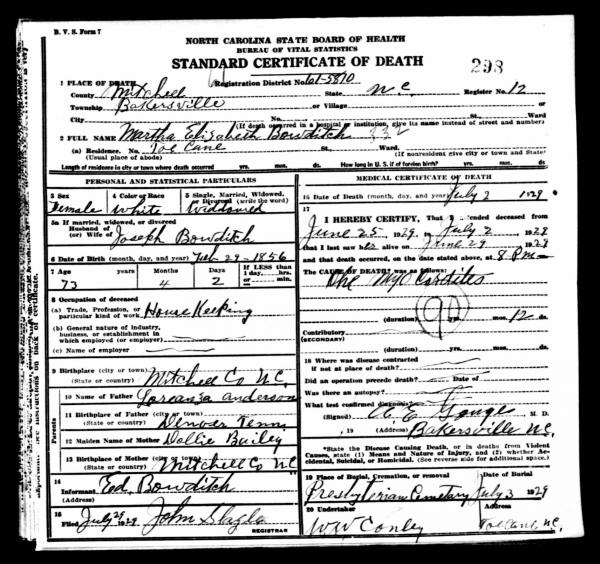 B. V. S. Form 7
NORTH CAROLINA STATE BOARD OF HEALTH
BUREAU OF VITAL STATISTICS
STANDARD CERTIFICATE OF DEATH
298
1 PLACE OF DEATH Registration District No. 61-5810
County Mitchell State N C Register No. 12
Township Bakersville or Village
City No. St., Ward
(If death occurred in a hospital or institution, give its name instead of street and number)
2 FULL NAME Martha Elizabeth Bowditch 332
(a) Residence. No. Toe Cane St., Ward
(Usual place of abode) (If nonresident give city or town and State)
Length of residence in city or town where death occurred yrs. mos. ds. How long in U. S. if of foreign birth? yrs. mos. ds.
PERSONAL AND STATISTICAL PARTICULARS
3 Sex Female
4 Color or Race White
5 Single, Married, Widowed, or Divorced (write the word) Widdowed
5a If married, widowed, or divorced
Husband of
(or) Wife of Joseph Bowditch
6 Date of Birth (month, day, and year) Feb - 29 - 1856
7 Age years Months Days If LESS than
1 day, hrs.
or min.
73 4 2
8 Occupation of deceased
(a) Trade, Profession, or
particular kind of work House Keeping
(b) General nature of industry,
business, or establishment in
which employed (or employer)
(c) Name of employer
9 Birthplace (city or town)
(State or country) Mitchell Co N.C.
Parents
10 Name of Father Loranza Anderson
11 Birthplace of Father (city or town)
(State or country) Denver Tenn
12 Maiden Name of Mother Dollie Bailey
13 Birthplace of Mother (city or town)
(State or country) Mitchell Co N C
14
Informant Ed. Bowditch
(Address)
15
Filed July 29 1929 John Slagle
REGISTRAR
MEDICAL CERTIFICATE OF DEATH
16 Date of Death (month, day, and year) July 2 1929
17
I HEREBY CERTIFY, That I attended deceased from
June 25 1929 to July 2 1929
that I last saw her alive on June 29 1929
and that death occurred, on the date stated above, at 8 Pm
The CAUSE OF DEATH was as follows:
Myo Carditis
90
(duration) yrs. mos. 12 ds.
Contributory
(SECONDARY)
(duration) yrs. mos. ds.
18 Where was disease contracted
if not at place of death?
Did an operation precede death? Date of
Was there an autopsy?
What test confirmed diagnosis?
(Signed) A. E. Gouge M. D.
, 19 (Address) Bakersville N.C.
*State the Disease Causing Death, or in deaths from Violent
Causes, state (1) Means and Nature of Injury, and (2) whether Ac-
cidental, Suicidal, or Homicidal. (See reverse side for additional space.)
19 Place of Burial, Cremation, or removal Date of Burial
Presbyterian Cemetery July 3 1929
20 Undertaker Address
W W Conley Toe Cane N.C.